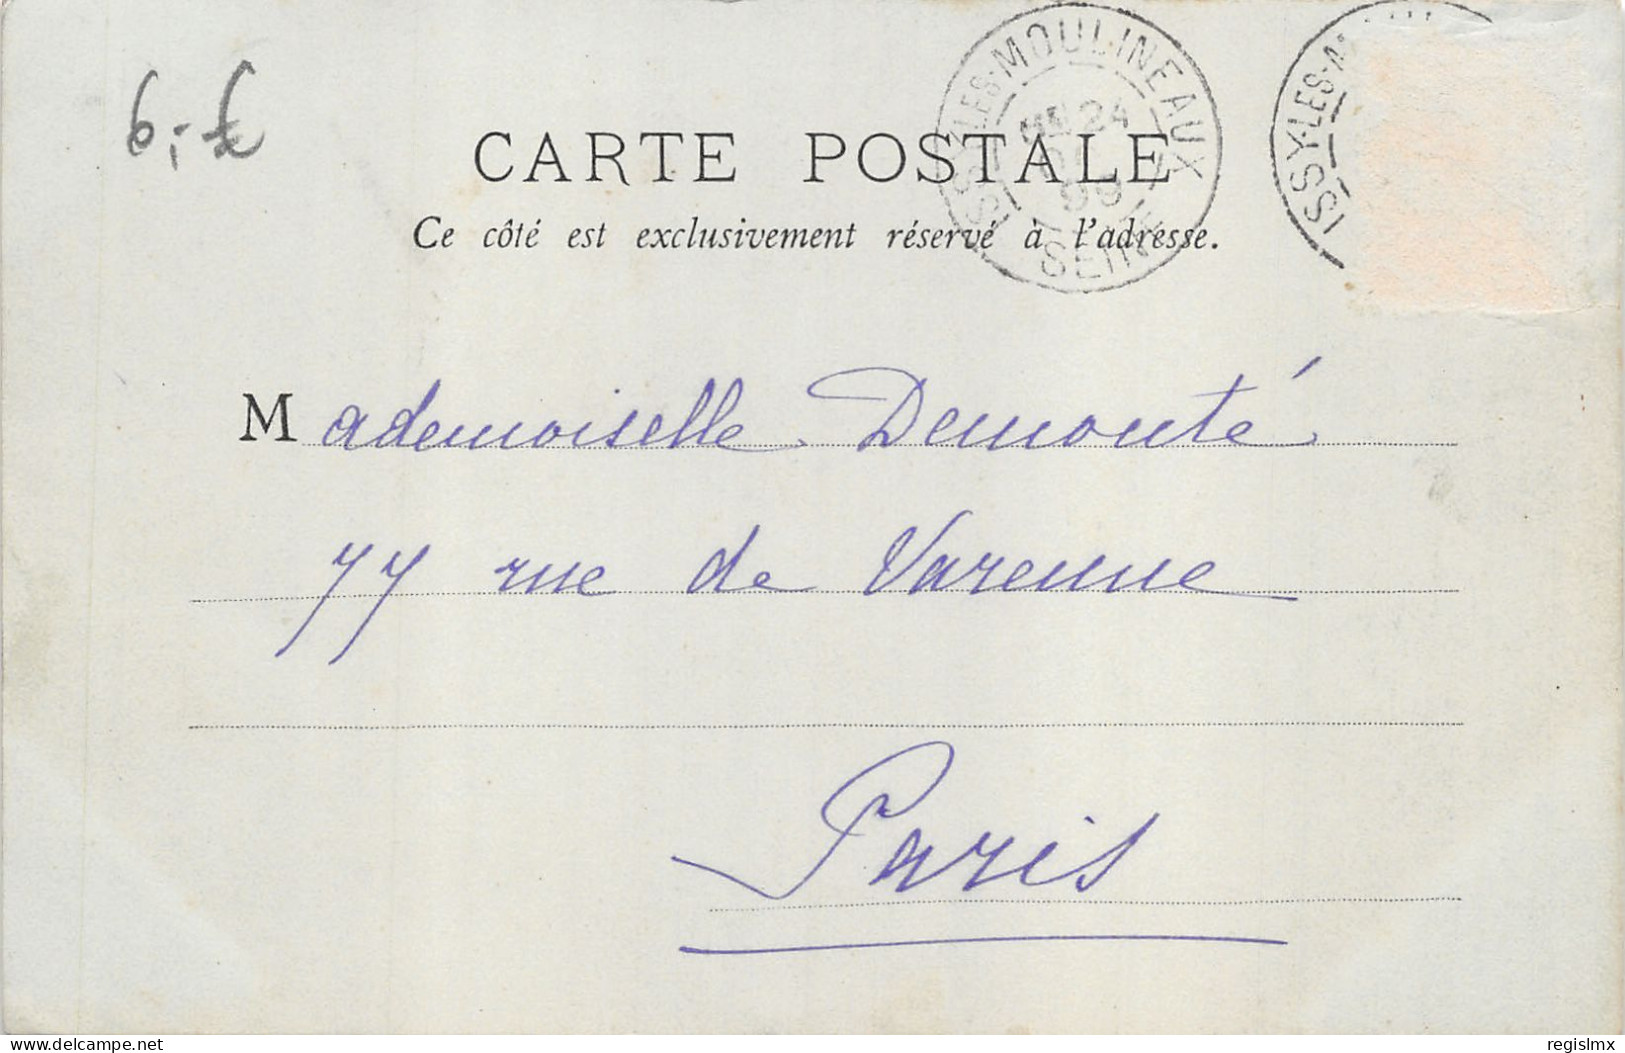 6,-€
CARTE POSTALE
Ce côté est exclusivement réservé à l'adresse.
ISSY·LES·MOULINEAUX
24
99
SEINE
ISSY·LES·M
Mademoiselle Demonté
77 rue de Varenne
Paris
www.delcampe.net
regislmx